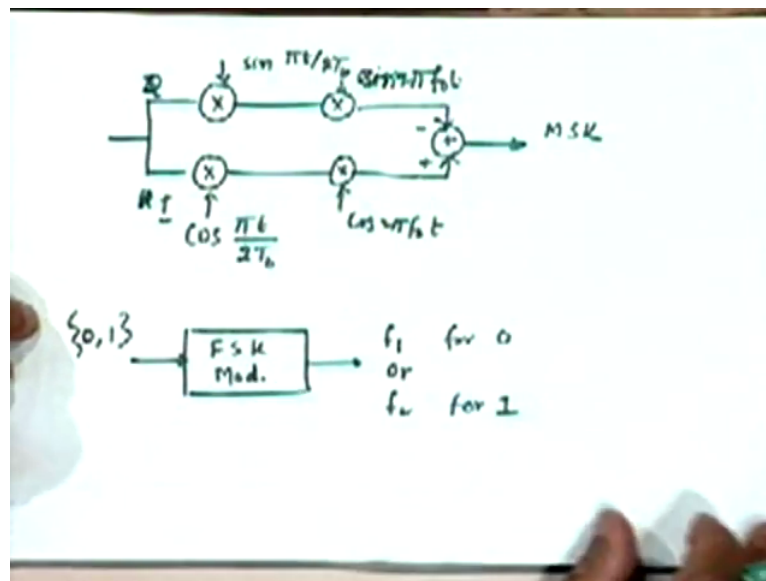 sin πt/2T_b
sin 2πf₀t
Q
- 
+
+
MSK
I
cos πt/2T_b
cos 2πf₀t
{0,1}
FSK
Mod.
f₁ for 0
or
f₂ for 1